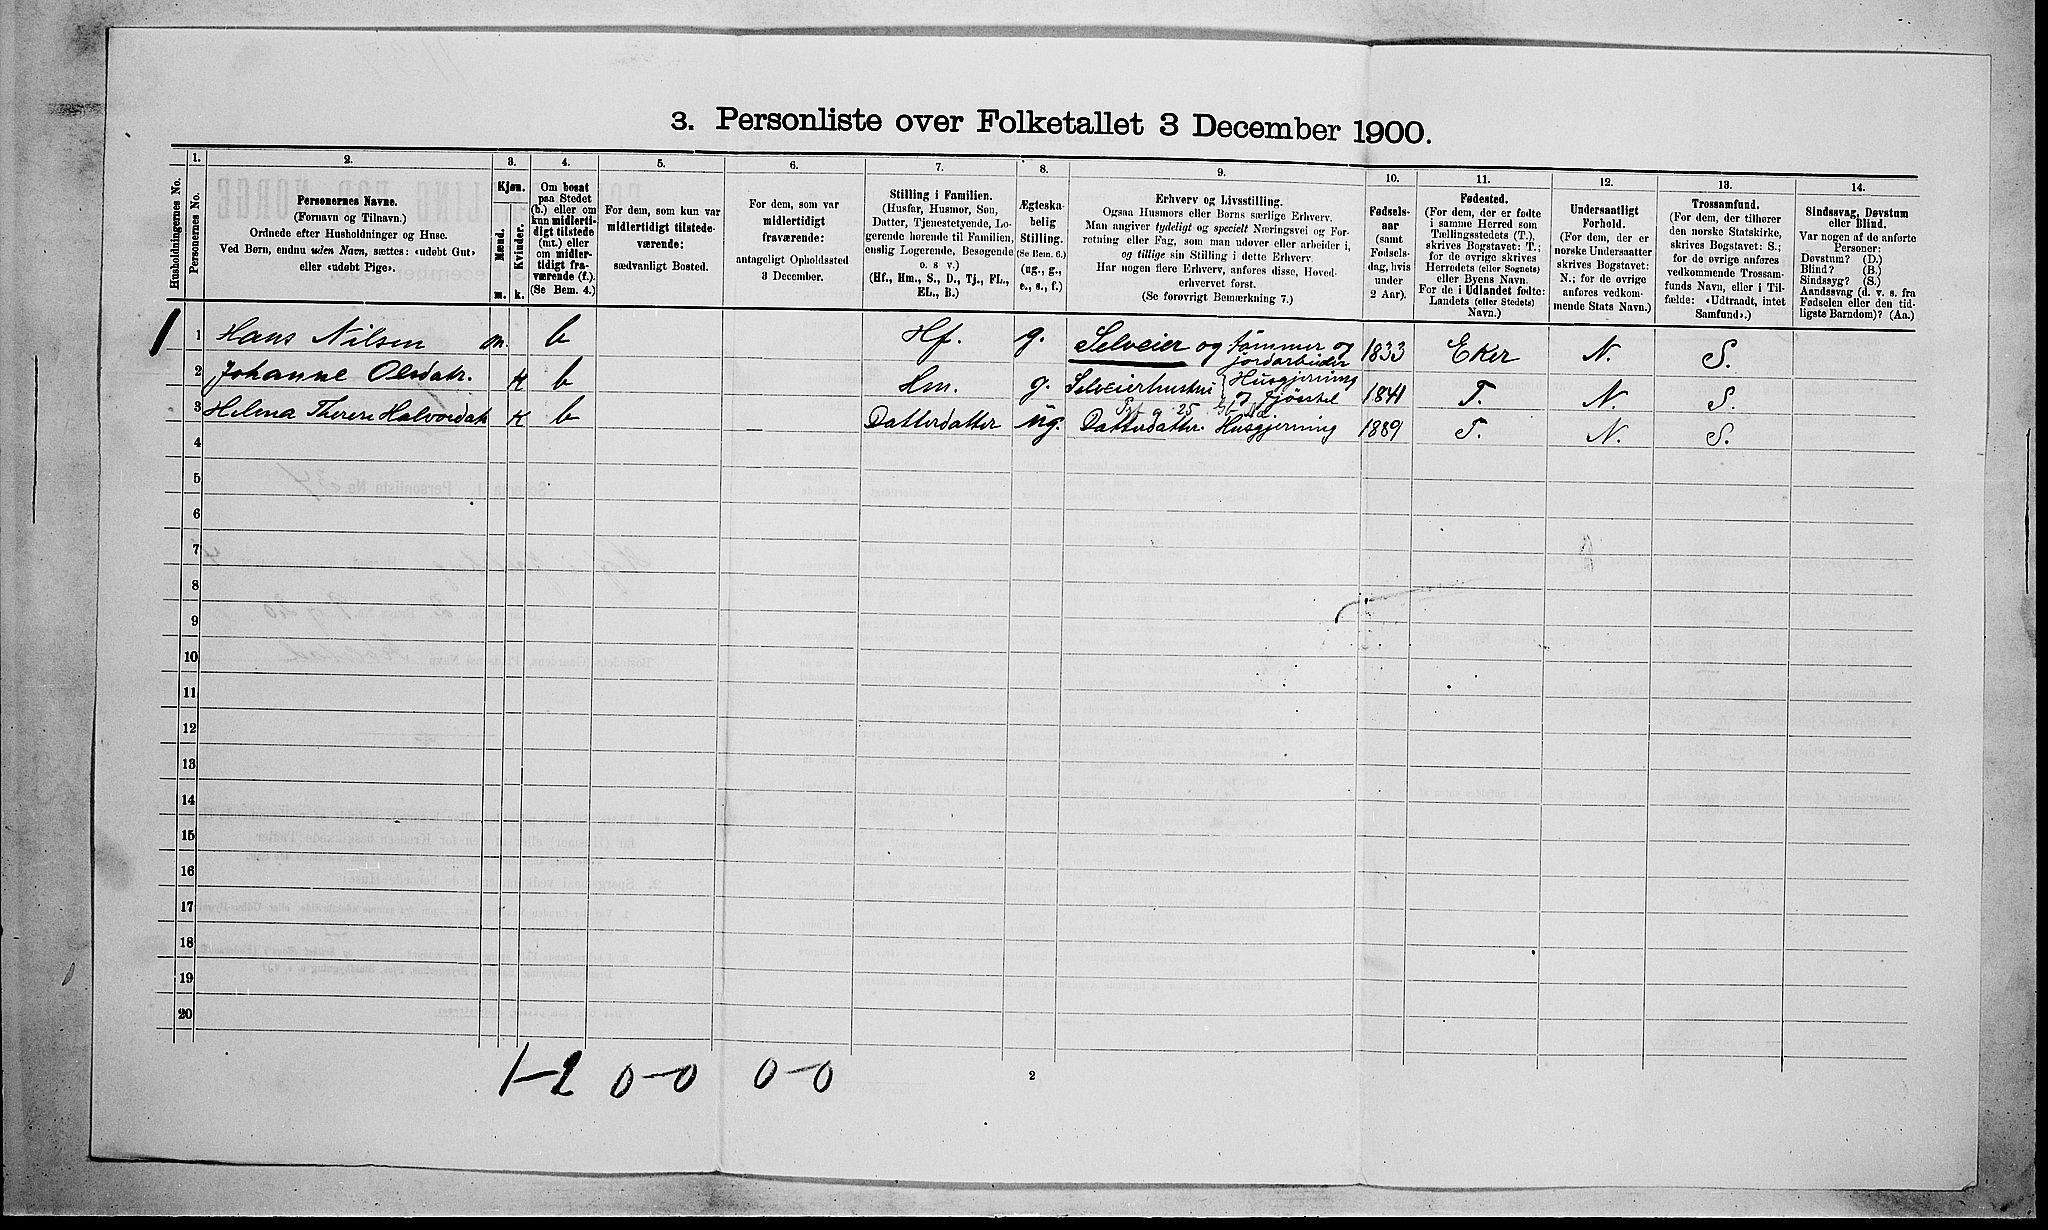 3. Personliste over Folketallet 3 December 1900.
Husholdningernes No.
1.
Personernes No.
2.
Personernes Navne.
(Fornavn og Tilnavn.)
Ordnede efter Husholdninger og Huse.
Ved Børn, endnu uden Navn, sættes: «udøbt Gut»
eller «udøbt Pige».
3.
Kjøn.
Mænd.
Kvinder.
m.
k.
4.
Om bosat
paa Stedet
(b.) eller om
kun midlerti-
digt tilstede
(mt.) eller
om midler-
tidigt fra-
værende (f.).
(Se Bem. 4.)
5.
For dem, som kun var
midlertidigt tilstede-
værende:
sædvanligt Bosted.
6.
For dem, som var
midlertidigt
fraværende:
antageligt Opholdssted
3 December.
7.
Stilling i Familien.
(Husfar, Husmor, Søn,
Datter, Tjenestetyende, Lo-
gerende hørende til Familien,
enslig Logerende, Besøgende
o. s v.)
(Hf., Hm., S., D., Tj., FL.,
EL., B.)
8.
Ægteska-
belig
Stilling.
(Se Bem. 6.)
(ug., g.,
e., s., f.)
9.
Erhverv og Livsstilling.
Ogsaa Husmors eller Børns særlige Erhverv.
Man angiver tydeligt og specielt Næringsvei og For-
retning eller Fag, som man udøver eller arbeider i,
og tillige sin Stilling i dette Erhverv.
Har nogen flere Erhverv, anføres disse, Hoved-
erhvervet først.
(Se forøvrigt Bemærkning 7.)
10.
Fødsels-
aar
(samt
Fødsels-
dag, hvis
under
2 Aar).
11.
Fødested.
(For dem, der er fødte
i samme Herred som
Tællingsstedets (T.),
skrives Bogstavet: T.;
for de øvrige skrives
Herredets (eller Sognets)
eller Byens Navn.
For de i Udlandet fødte:
Landets (eller Stedets)
Navn.)
12.
Undersaatligt
Forhold.
(For dem, der er
norske Undersaatter
skrives Bogstavet:
N.; for de øvrige
anføres vedkom-
mende Stats Navn.)
13.
Trossamfund.
(For dem, der tilhører
den norske Statskirke,
skrives Bogstavet: S.;
for de øvrige anføres
vedkommende Trossam-
funds Navn, eller i Til-
fælde: «Udtraadt, intet
Samfund».)
14.
Sindssvag, Døvstum
eller Blind.
Var nogen af de anførte
Personer:
Døvstum? (D.)
Blind? (B.)
Sindssyg? (S.)
Aandssvag (d. v. s. fra
Fødselen eller den tid-
ligste Barndom)? (Aa.)
1 1 Hans Nilsen m. b Hf. g. Selveier og tømmer og jordarbeider 1833 Eker N. S.
2 Johanne Olsdatr. K b Hm. g. Selveierhustru Husgjerning og fjøsstel 1841 T. N. S.
3 Helena Therese Halvorsdatr K b Datterdatter ug. Datterdatter. Husgjerning 1889 T. N. S.
4
5
6
7
8
9
10
11
12
13
14
15
16
17
18
19
20
1-2 0-0 0-0
2